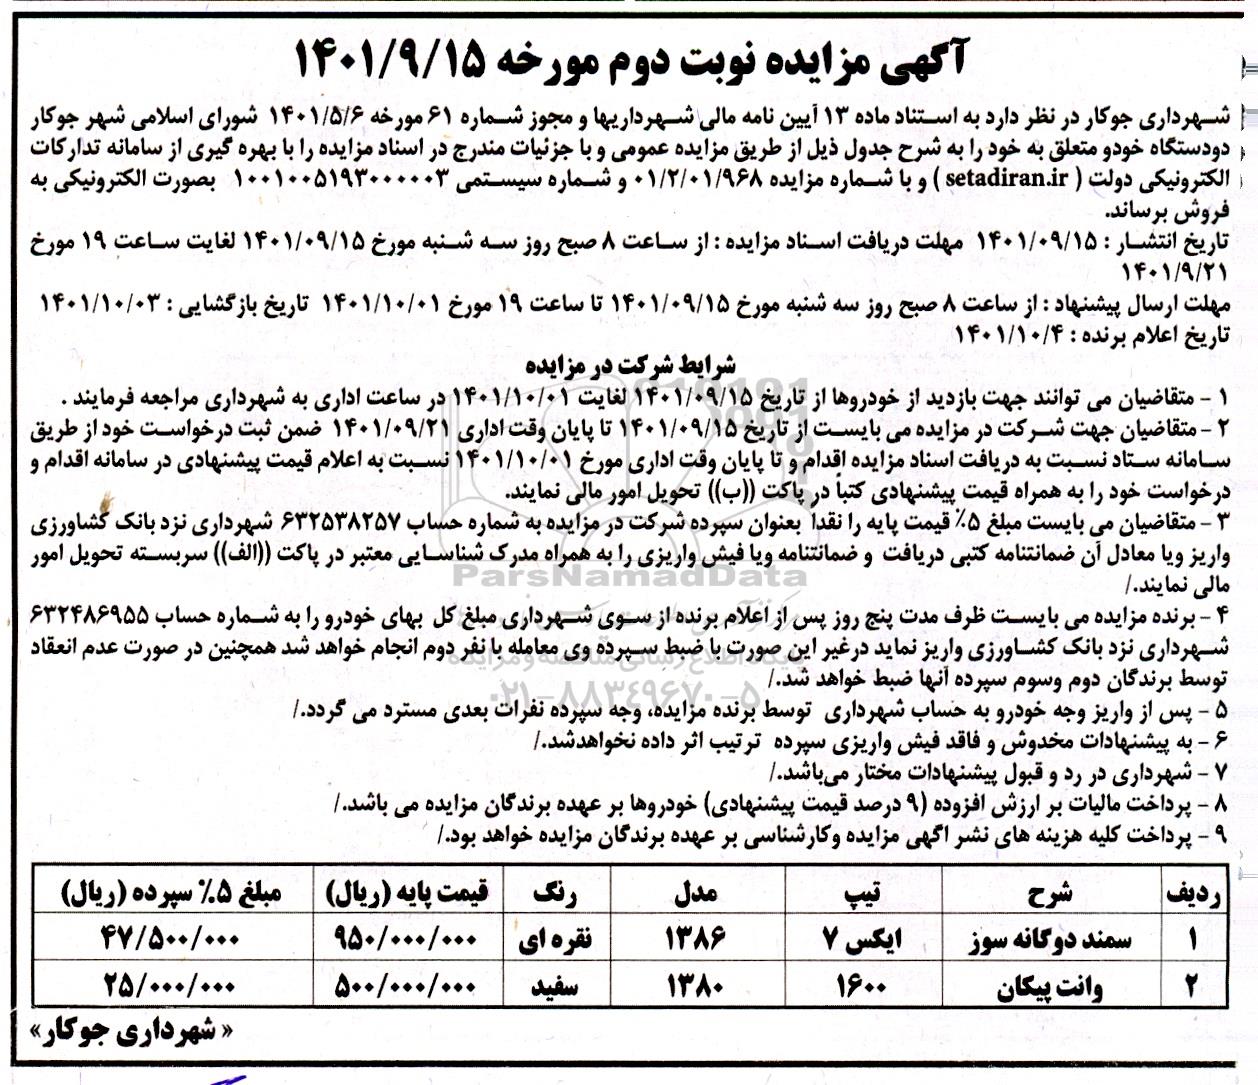 آگهی مزایده نوبت دوم مورخه ۱۴۰۱/۹/۱۵
شهرداری جوکار در نظر دارد به استناد ماده ۱۳ آیین نامه مالی شهرداریها و مجوز شماره ۶۱ مورخه ۱۴۰۱/۵/۶ شورای اسلامی شهر جوکار
دودستگاه خودو متعلق به خود را به شرح جدول ذیل از طریق مزایده عمومی و با جزئیات مندرج در اسناد مزایده را با بهره گیری از سامانه تدارکات
الکترونیکی دولت ( setadiran.ir ) و با شماره مزایده ۰۱/۲/۰۱/۹۶۸ و شماره سیستمی ۱۰۰۱۰۰۵۱۹۳۰۰۰۰۰۳ بصورت الکترونیکی به
فروش برساند.
تاریخ انتشار : ۱۴۰۱/۰۹/۱۵ مهلت دریافت اسناد مزایده : از ساعت ۸ صبح روز سه شنبه مورخ ۱۴۰۱/۰۹/۱۵ لغایت ساعت ۱۹ مورخ
۱۴۰۱/۹/۲۱
مهلت ارسال پیشنهاد : از ساعت ۸ صبح روز سه شنبه مورخ ۱۴۰۱/۰۹/۱۵ تا ساعت ۱۹ مورخ ۱۴۰۱/۱۰/۰۱ تاریخ بازگشایی : ۱۴۰۱/۱۰/۰۳
تاریخ اعلام برنده : ۱۴۰۱/۱۰/۴
شرایط شرکت در مزایده
۱ - متقاضیان می توانند جهت بازدید از خودروها از تاریخ ۱۴۰۱/۰۹/۱۵ لغایت ۱۴۰۱/۱۰/۰۱ در ساعت اداری به شهرداری مراجعه فرمایند .
۲ - متقاضیان جهت شرکت در مزایده می بایست از تاریخ ۱۴۰۱/۰۹/۱۵ تا پایان وقت اداری ۱۴۰۱/۰۹/۲۱ ضمن ثبت درخواست خود از طریق
سامانه ستاد نسبت به دریافت اسناد مزایده اقدام و تا پایان وقت اداری مورخ ۱۴۰۱/۱۰/۰۱ نسبت به اعلام قیمت پیشنهادی در سامانه اقدام و
درخواست خود را به همراه قیمت پیشنهادی کتباً در پاکت ((ب)) تحویل امور مالی نمایند.
۳ - متقاضیان می بایست مبلغ ۵٪ قیمت پایه را نقداً بعنوان سپرده شرکت در مزایده به شماره حساب ۶۳۲۵۳۸۲۵۷ شهرداری نزد بانک کشاورزی
واریز ویا معادل آن ضمانتنامه کتبی دریافت و ضمانتنامه ویا فیش واریزی را به همراه مدرک شناسایی معتبر در پاکت ((الف)) سربسته تحویل امور
مالی نمایند./
ParsNamadData
۴ - برنده مزایده می بایست ظرف مدت پنج روز پس از اعلام برنده از سوی شهرداری مبلغ کل بهای خودرو را به شماره حساب ۶۳۲۴۸۶۹۵۵
شهرداری نزد بانک کشاورزی واریز نماید درغیر این صورت با ضبط سپرده وی معامله با نفر دوم انجام خواهد شد همچنین در صورت عدم انعقاد
توسط برندگان دوم وسوم سپرده آنها ضبط خواهد شد./
۰۲۱-۸۸۳۴۹۶۷۰-۵
۵ - پس از واریز وجه خودرو به حساب شهرداری توسط برنده مزایده، وجه سپرده نفرات بعدی مسترد می گردد./
۶ - به پیشنهادات مخدوش و فاقد فیش واریزی سپرده ترتیب اثر داده نخواهدشد./
۷ - شهرداری در رد و قبول پیشنهادات مختار می‌باشد./
۸ - پرداخت مالیات بر ارزش افزوده (۹ درصد قیمت پیشنهادی) خودروها بر عهده برندگان مزایده می باشد./
۹ - پرداخت کلیه هزینه های نشر آگهی مزایده وکارشناسی بر عهده برندگان مزایده خواهد بود./
ردیف شرح تیپ مدل رنگ قیمت پایه (ریال) مبلغ ۵٪ سپرده (ریال)
۱ سمند دوگانه سوز ایکس ۷ ۱۳۸۶ نقره ای ۹۵۰/۰۰۰/۰۰۰ ۴۷/۵۰۰/۰۰۰
۲ وانت پیکان ۱۶۰۰ ۱۳۸۰ سفید ۵۰۰/۰۰۰/۰۰۰ ۲۵/۰۰۰/۰۰۰
« شهرداری جوکار»